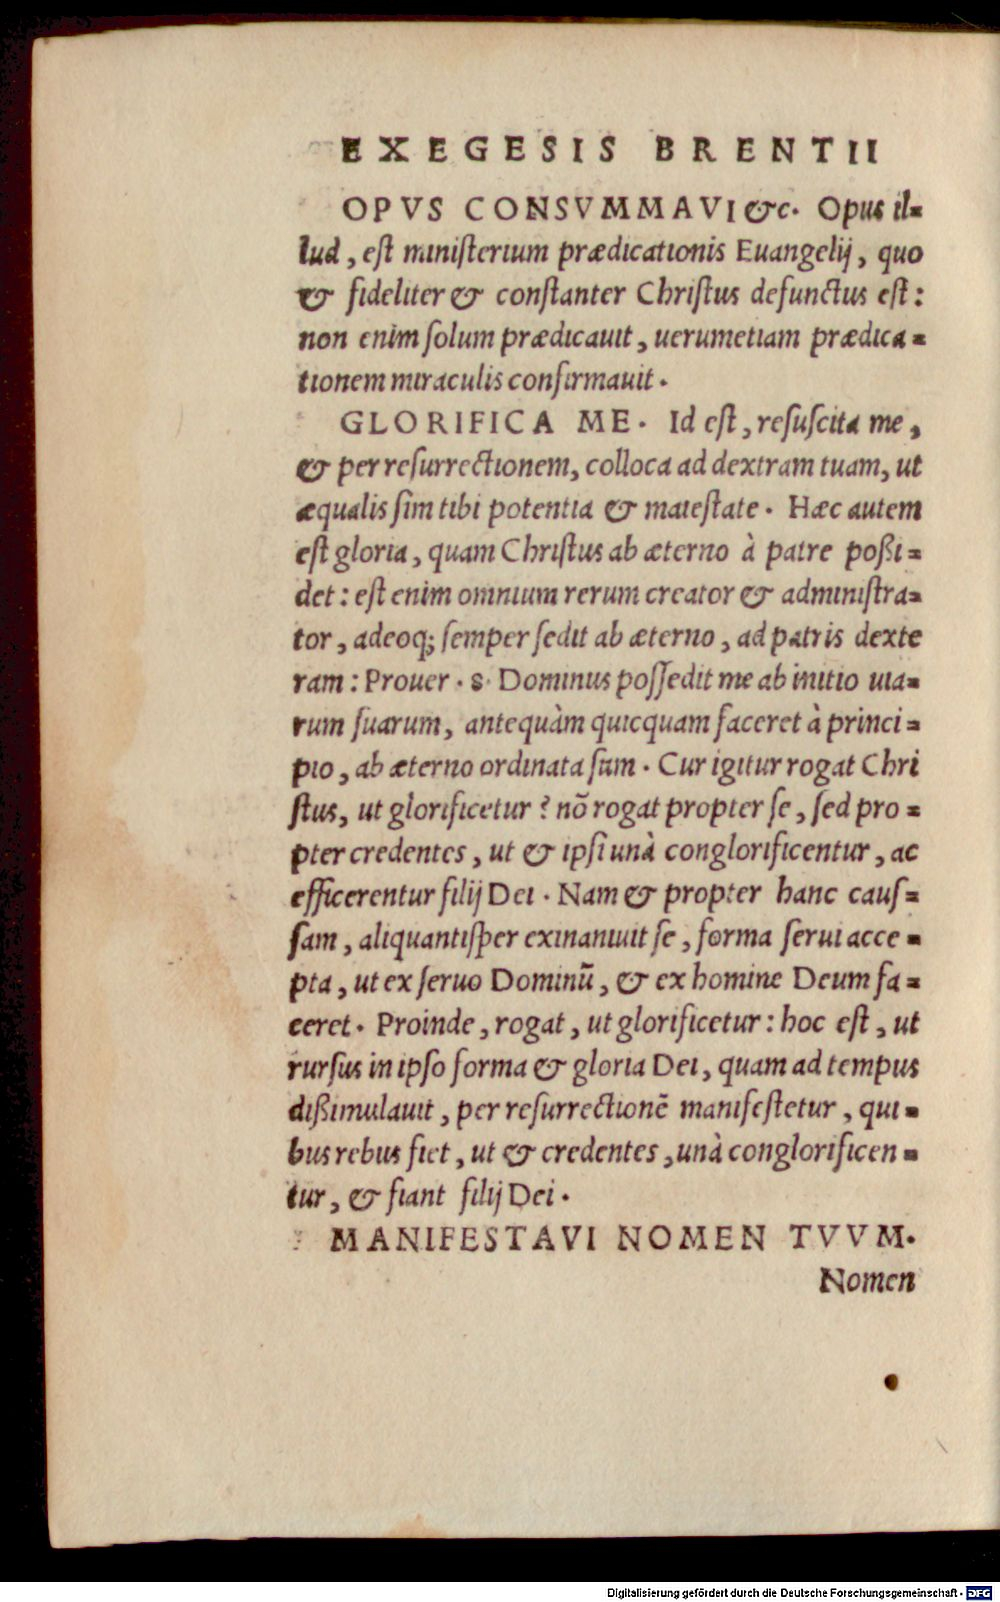 EXEGESIS BRENTII
OPVS CONSVMMAVI &c. Opus il=
lud, est ministerium prædicationis Euangelij, quo
& fideliter & constanter Christus defunctus est:
non enim solum prædicauit, uerumetiam prædica=
tionem miraculis confirmauit.
GLORIFICA ME. Id est, resuscita me,
& per resurrectionem, colloca ad dextram tuam, ut
æqualis sim tibi potentia & maiestate. Hæc autem
est gloria, quam Christus ab æterno à patre poßi=
det: est enim omnium rerum creator & administra=
tor, adeoq; semper sedit ab æterno, ad patris dexte
ram: Prouer. 8. Dominus possedit me ab initio uia=
rum suarum, antequàm quicquam faceret à princi=
pio, ab æterno ordinata sum. Cur igitur rogat Chri
stus, ut glorificetur? nõ rogat propter se, sed pro=
pter credentes, ut & ipsi unà conglorificentur, ac
efficerentur filij Dei. Nam & propter hanc caus=
sam, aliquantisper exinaniuit se, forma serui acce=
pta, ut ex seruo Dominũ, & ex homine Deum fa=
ceret. Proinde, rogat, ut glorificetur: hoc est, ut
rursus in ipso forma & gloria Dei, quam ad tempus
dißimulauit, per resurrectionẽ manifestetur, qui=
bus rebus fiet, ut & credentes, unà conglorificen=
tur, & fiant filij Dei.
MANIFESTAVI NOMEN TVVM.
Nomen
Digitalisierung gefördert durch die Deutsche Forschungsgemeinschaft - DFG